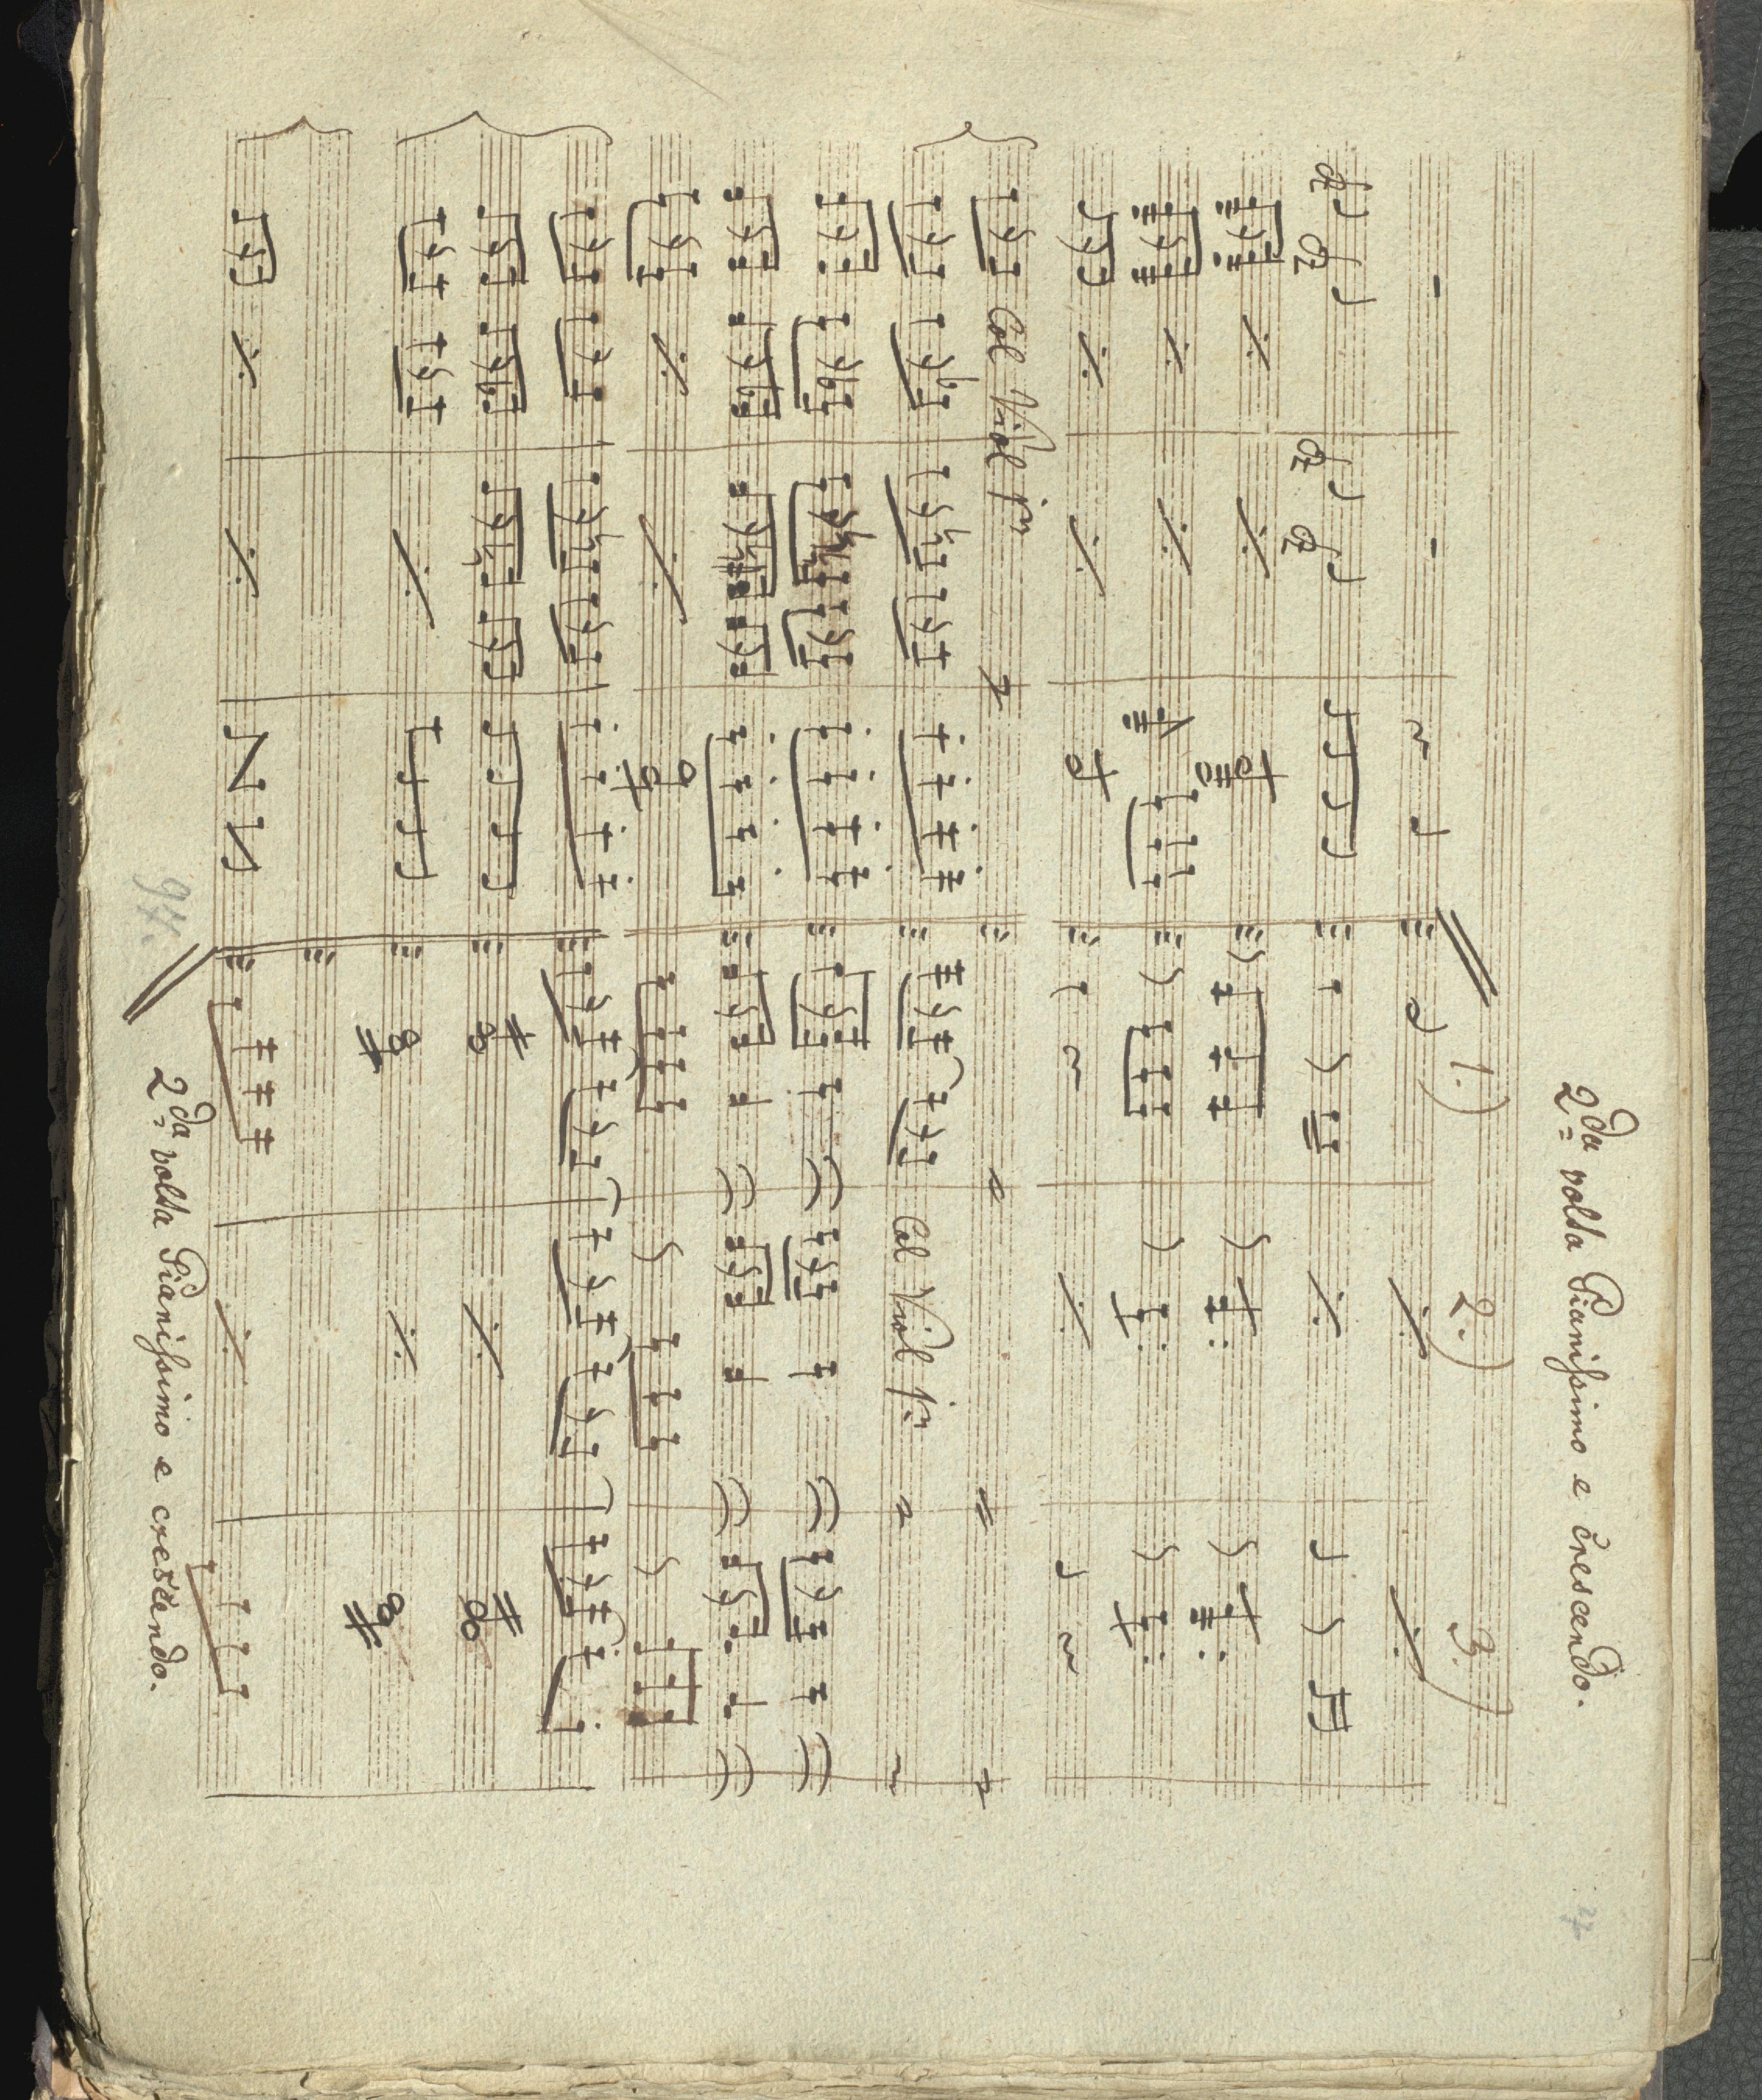 2da volta Pianissimo e Crescendo.
1.) 2.) 3.)
Col Viol pmo
Col Viol pmo
2da volta Pianissimo e crescendo.